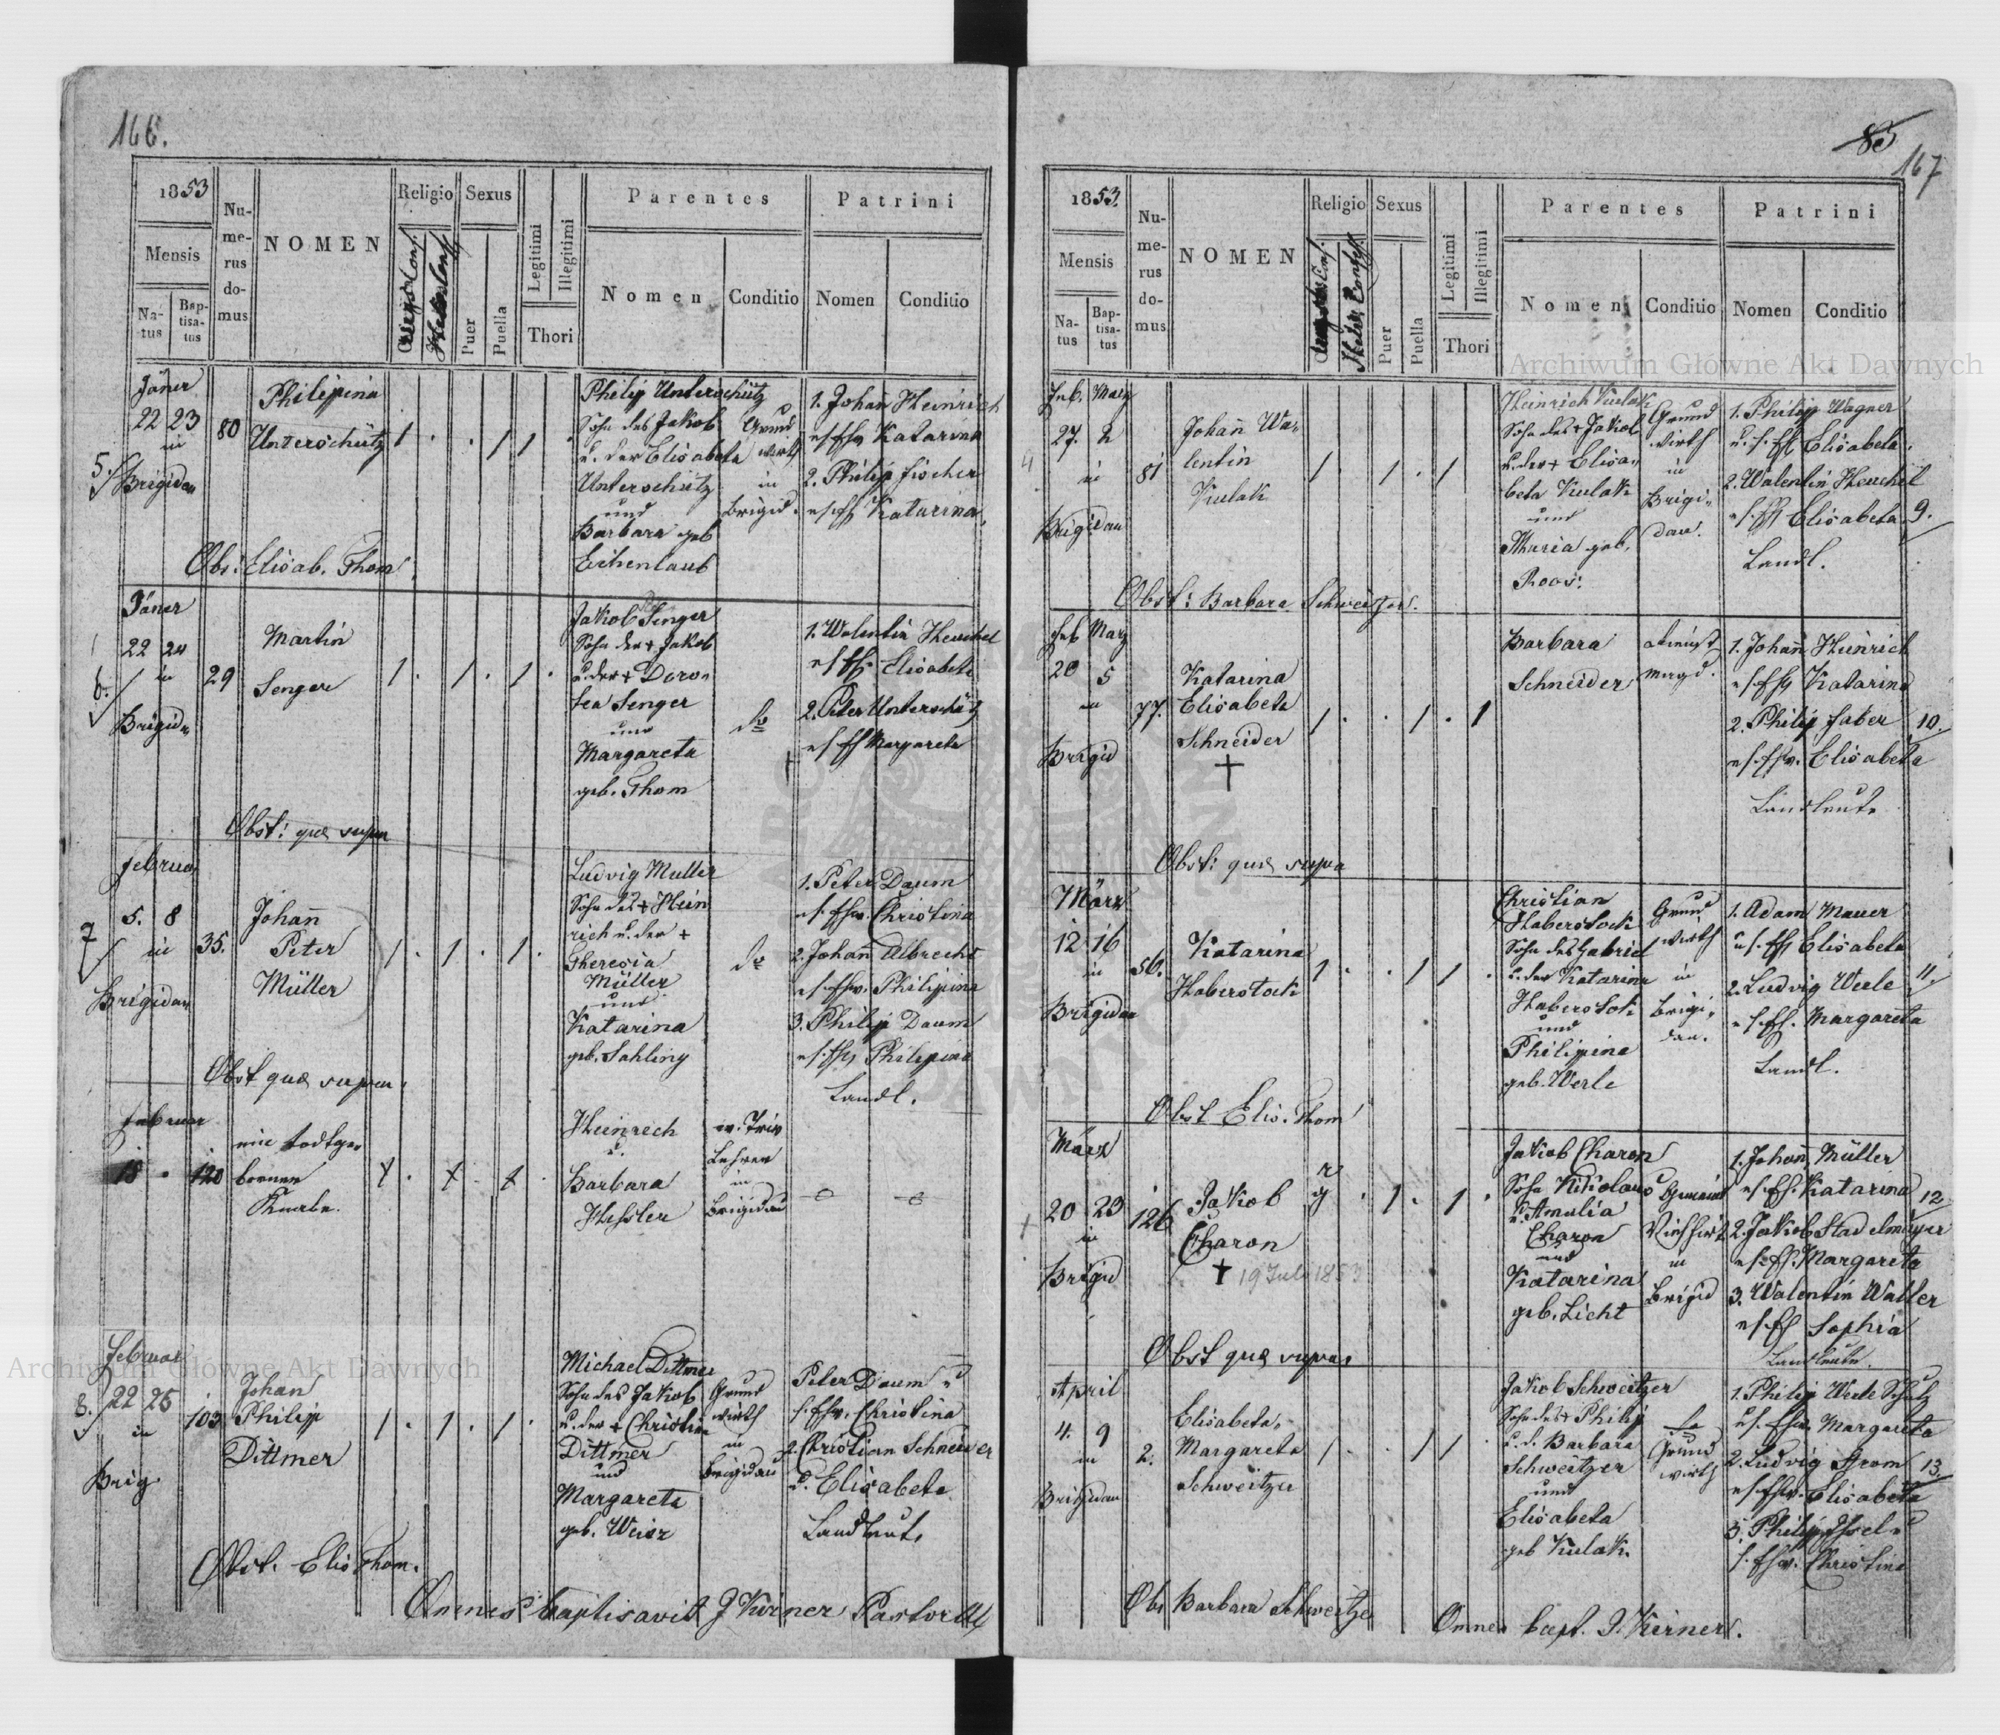 166.
1853
Mensis
Natus
Baptisatus
Numerus domus
NOMEN
Religio
Sexus
Puer
Puella
Legitimi
Illegitimi
Thori
Parentes
Nomen
Conditio
Patrini
Nomen
Conditio
5.
Jäner
22 23
in
Brigidau
80
Philipina
Unterschütz
1 . . 1 1 .
Philip Unterschütz
Sohn des Jakob
u. der Elisabeta
Unterschütz
und
Barbara geb
Eichenlaub
Grund
wirth
in
Brigid.
1. Johañ Heinrich
Katarina
2. Philip Fischer
Katarina
Obs: Elisab. Thom
6.
Jäner
22 24
in
Brigid
29
Martin
Senger
1 . 1 . 1 .
Jakob Senger
Sohn der + Jakob
u. der + Doro-
tea Senger
und
Margareta
geb. Thom
do
1. Walentin Heuchel
Elisabeta
2. Peter Unterschütz
Margareta
Obst: quæ supra
7
Februar
5. 8
in
Brigidau
35.
Johañ
Peter
Müller
1 . 1 . 1 .
Ludvig Muller
Sohn des + Hein
rich u. der +
Theresia
Müller
und
Katarina
geb. Sahling
do
1. Peter Daum
Christina
2. Johañ Albrecht
Philipina
3. Philip Daum
Philipina
Landl.
Obst quæ supra
Februar
18 .
120
ein todtge-
borener
Knabe.
Heinrech
u.
Barbara
Hessler
Lehrer
in
Brigidau
Februar
8.
22 25
in
Brig
103
Johan
Philip
Dittmer
1 . 1 . 1 .
Michael Dittmer
Sohn des Jakob
u. der + Christina
Dittmer
und
Margareta
geb. Weisz
Grund
wirth
in
Brigidau
Peter Daum u
Christina
2. Christian Schneider
Elisabeta
Landleute
Obst. Elis Thom.
Omnes baptisavit J Kirner Pastor
85
167
1853.
Mensis
Natus
Baptisatus
Numerus domus
NOMEN
Religio
Sexus
Puer
Puella
Legitimi
Illegitimi
Thori
Parentes
Nomen
Conditio
Patrini
Nomen
Conditio
Archiwum Główne Akt Dawnych
Feb. März
27. 2
in
Brigidau
81
Johañ Wa-
lentin
Kulak
1 . 1 . 1
Heinrich Kulak
Sohn des + Jakob
u. der + Elisa-
beta Kulak
und
Maria geb.
Roos:
Grund
wirth
in
Brigi-
dau.
1. Philip Wagner
Elisabeta
2. Walentin Heuchel
Elisabeta
Landl.
9.
Obst: Barbara Schweitzer.
Feb März
20 5
Brigid
77.
Katarina
Elisabeta
Schneider
+
1 . . 1 . 1
Barbara
Schneider
magd.
1. Johañ Heinrich
Katarina
2. Philip Faber
Elisabeta
Landleute
10.
Obst: quæ supra
März
12 16
in
Brigidau
56.
Katarina
Haberstock
1 . . 1 1 .
Christian
Haberstock
Sohn des Gabriel
u. der Katarina
Haberstock
und
Philipina
geb. Werle
Grund
wirth
in
Brigi-
dau.
1. Adam Mauer
Elisabeta
2. Ludvig Werle
Margareta
Landl.
11.
Obst Elis. Thom
März
20 23
in
Brigid
126
Jakob
Charon
+ 19 Juli 1853
Jakob Charon
Sohn Nikolaus
u. Amalia
Charon
und
Katarina
geb. Licht
Gemeind
Viehhirt
in
Brigid
1. Johañ Müller
Katarina
2. Jakob Stadelmayer
Margareta
3. Walentin Walter
Sophia
Landleute.
12.
Obst quæ supra
April
4. 9
in
Brigidau
2.
Elisabeta
Margareta
Schweitzer
1 . . 1 1 .
Jakob Schweitzer
Sohn des + Philip
u. d. Barbara
Schweitzer
und
Elisabeta
geb Kulak.
Grund
wirth
1. Philip Werle Schulz
Margareta
2. Ludvig
Elisabeta
3. Philip
Christina
13.
Obs Barbara Schweitzer
Omnes bapt. J. Kirner.
Archiwum Główne Akt Dawnych